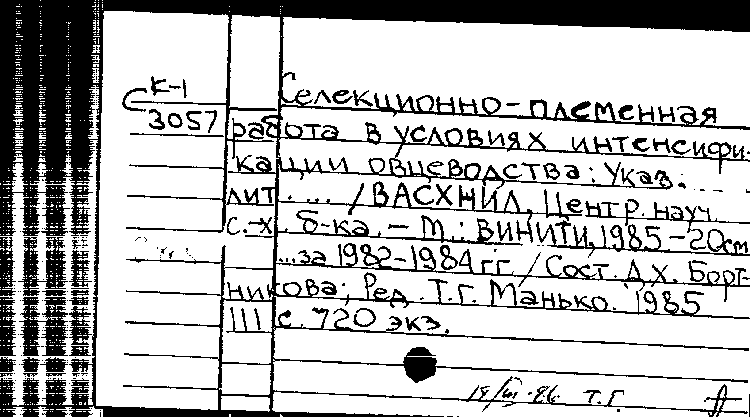 К-1
3057
Селекционно-племенная
работа в условиях интенсифи-
кации овцеводства: Указ.
лит. ... / ВАСХНИЛ, Центр. науч.
с.-х. б-ка. - М.: ВИНИТИ, 1985 - 20см
...за 1982-1984 гг. / Сост. Д.Х. Борт-
никова; Ред. Т.Г. Манько. 1985
111 с. 720 экз.
Т.Г.